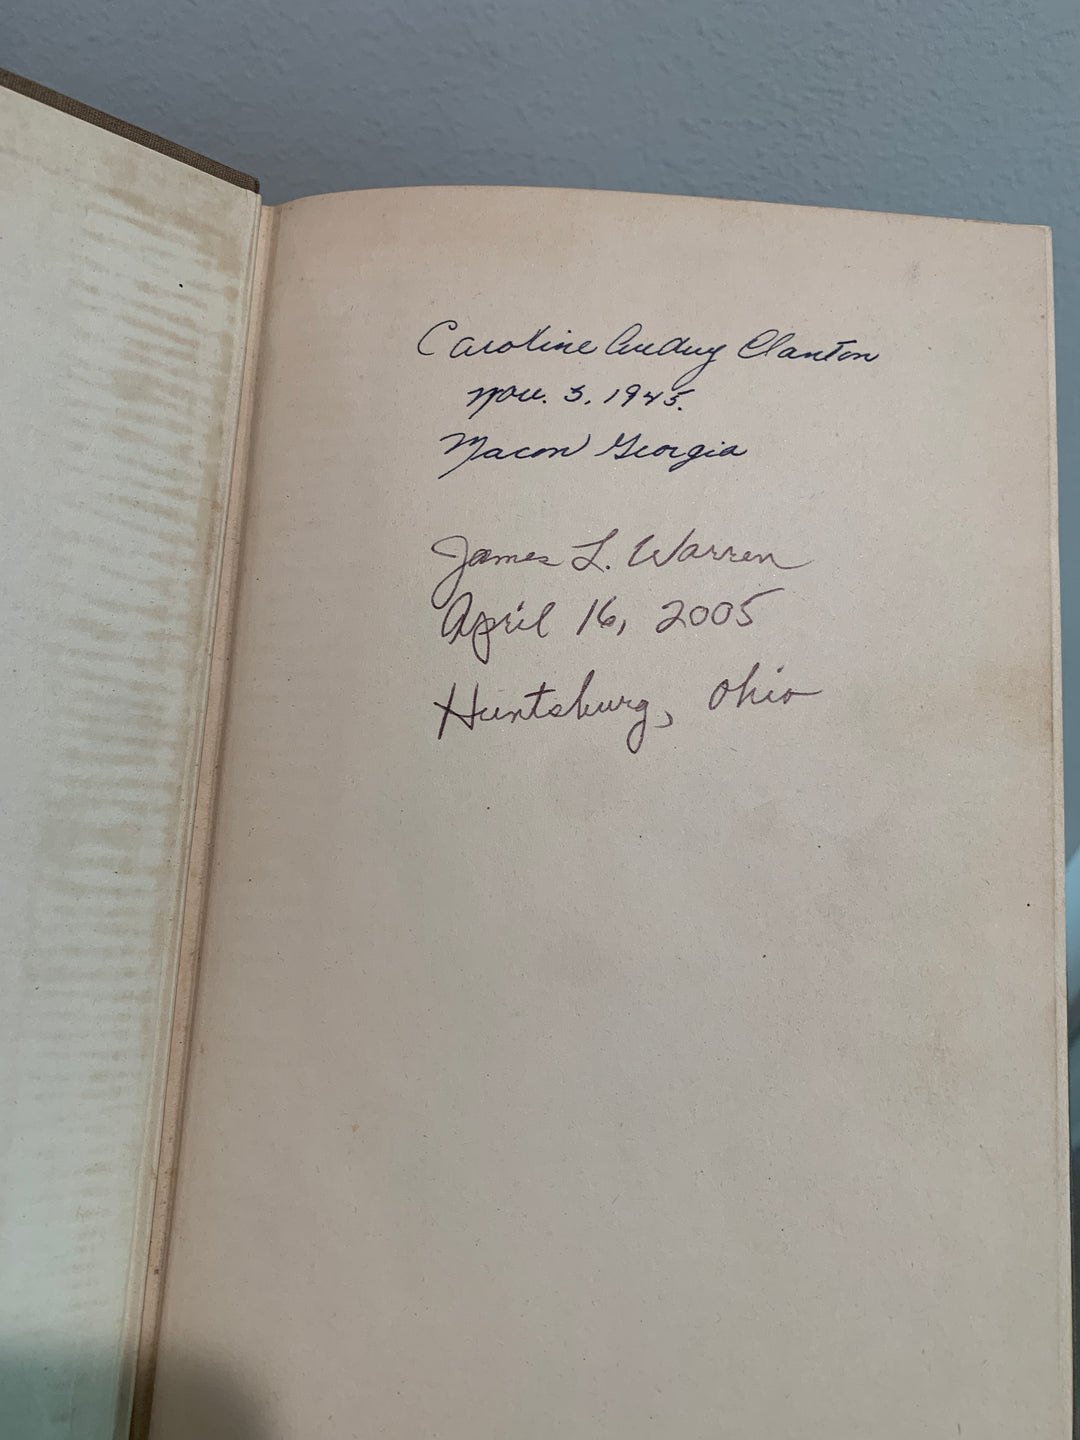 Caroline Audrey Clanton
Nov. 3. 1945.
Macon Georgia
James L. Warren
April 16, 2005
Huntsburg, Ohio